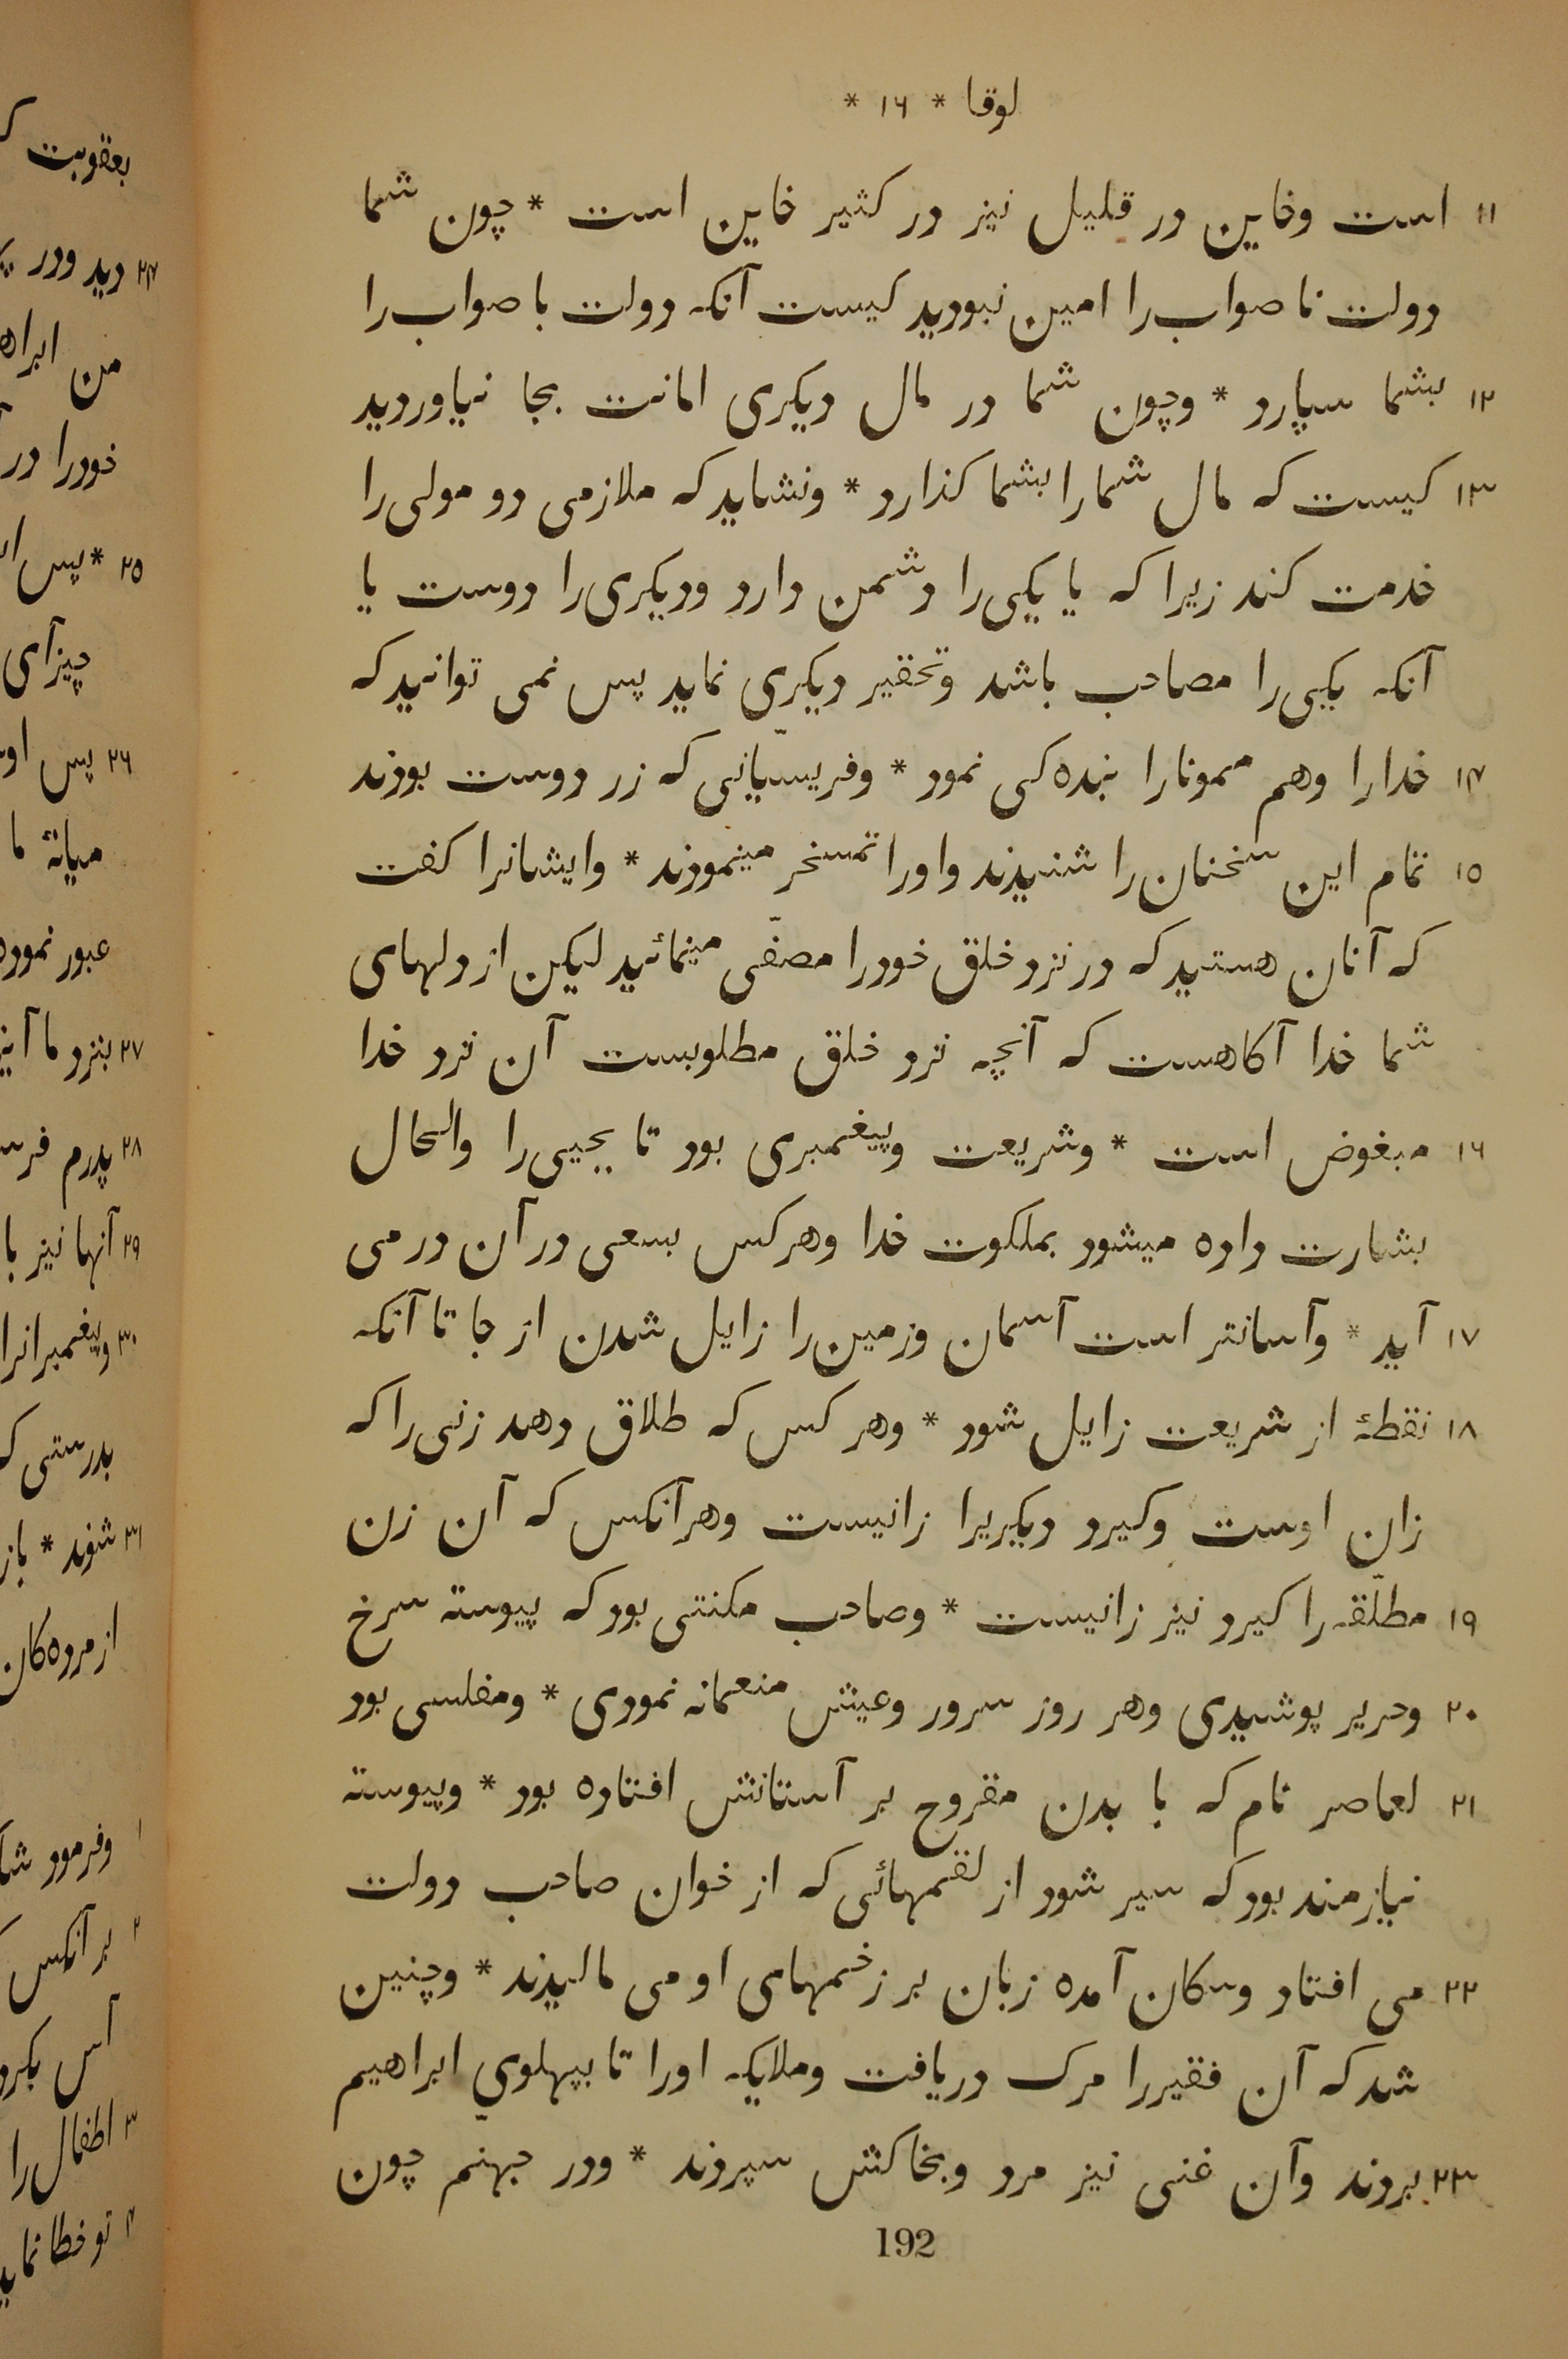 لوقا * ١٦ *
١١ است وخاین در قلیل نیز در کثیر خاین است * چون شما
دولت نا صواب را امین نبودید کیست آنکه دولت با صواب را
١٢ بشما سپارد * وچون شما در مال دیکری امانت بجا نیاوردید
١٣ کیست که مال شما را بشما کذارد * ونشاید که ملازمی دو مولی را
خدمت کند زیرا که یا یکی را دشمن دارد ودیکری را دوست یا
آنکه یکی را مصاحب باشد وتحقیر دیکری نماید پس نمی توانید که
١۴ خدا را وهم ممونا را بنده کی نمود * وفریسّیانی که زر دوست بودند
١٥ تمام این سخنان را شنیدند واورا تمسخر مینمودند * وایشانرا کفت
که آنان هستید که در نزد خلق خود را مصفّی مینمائید لیکن از دلهای
شما خدا آکاهست که آنچه نزد خلق مطلوبست آن نزد خدا
١٦ مبغوض است * وشریعت وپیغمبری بود تا یحیی را والحال
بشارت داده میشود بملکوت خدا وهر کس بسعی در آن در می
١٧ آید * وآسانتر است آسمان وزمین را زایل شدن از جا تا آنکه
١٨ نقطهٔ از شریعت زایل شود * وهر کس که طلاق دهد زنی را که
زان اوست وکیرد دیکریرا زانیست وهر آنکس که آن زن
١٩ مطلّقه را کیرد نیز زانیست * وصاحب مکنتی بود که پیوسته سرخ
٢٠ وحریر پوشیدی وهر روز سرور وعیش منعمانه نمودی * ومفلسی بود
٢١ لعاصر نام که با بدن مقروح بر آستانش افتاده بود * وپیوسته
نیازمند بود که سیر شود از لقمهائی که از خوان صاحب دولت
٢٢ می افتاد وسکان آمده زبان بر زخمهای او می مالیدند * وچنین
شد که آن فقیر را مرک دریافت وملایکه اورا تا بپهلوی ابراهیم
٢٣ بردند وآن غنی نیز مرد وبخاکش سپردند * ودر جهنم چون
192
بعقوبت
٢۴ دید ودر
من
خود را در
٢٥ * پس
چیزآی
٢٦ پس
میانهٔ ما
عبور
٢٧ بنزد ما
٢٨ پدرم
٢٩ آنها نیز با
٣٠ وپیغمبرانرا
بدرستی
٣١ شوند *
از مرده کان
١ وفرمود
٢ بر آنکس
آس
٣ اطفال را
۴ تو خطا